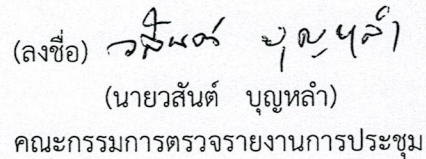 (ลงชื่อ) วสันต์ บุญหลำ
(นายวสันต์ บุญหลำ)
คณะกรรมการตรวจรายงานการประชุม